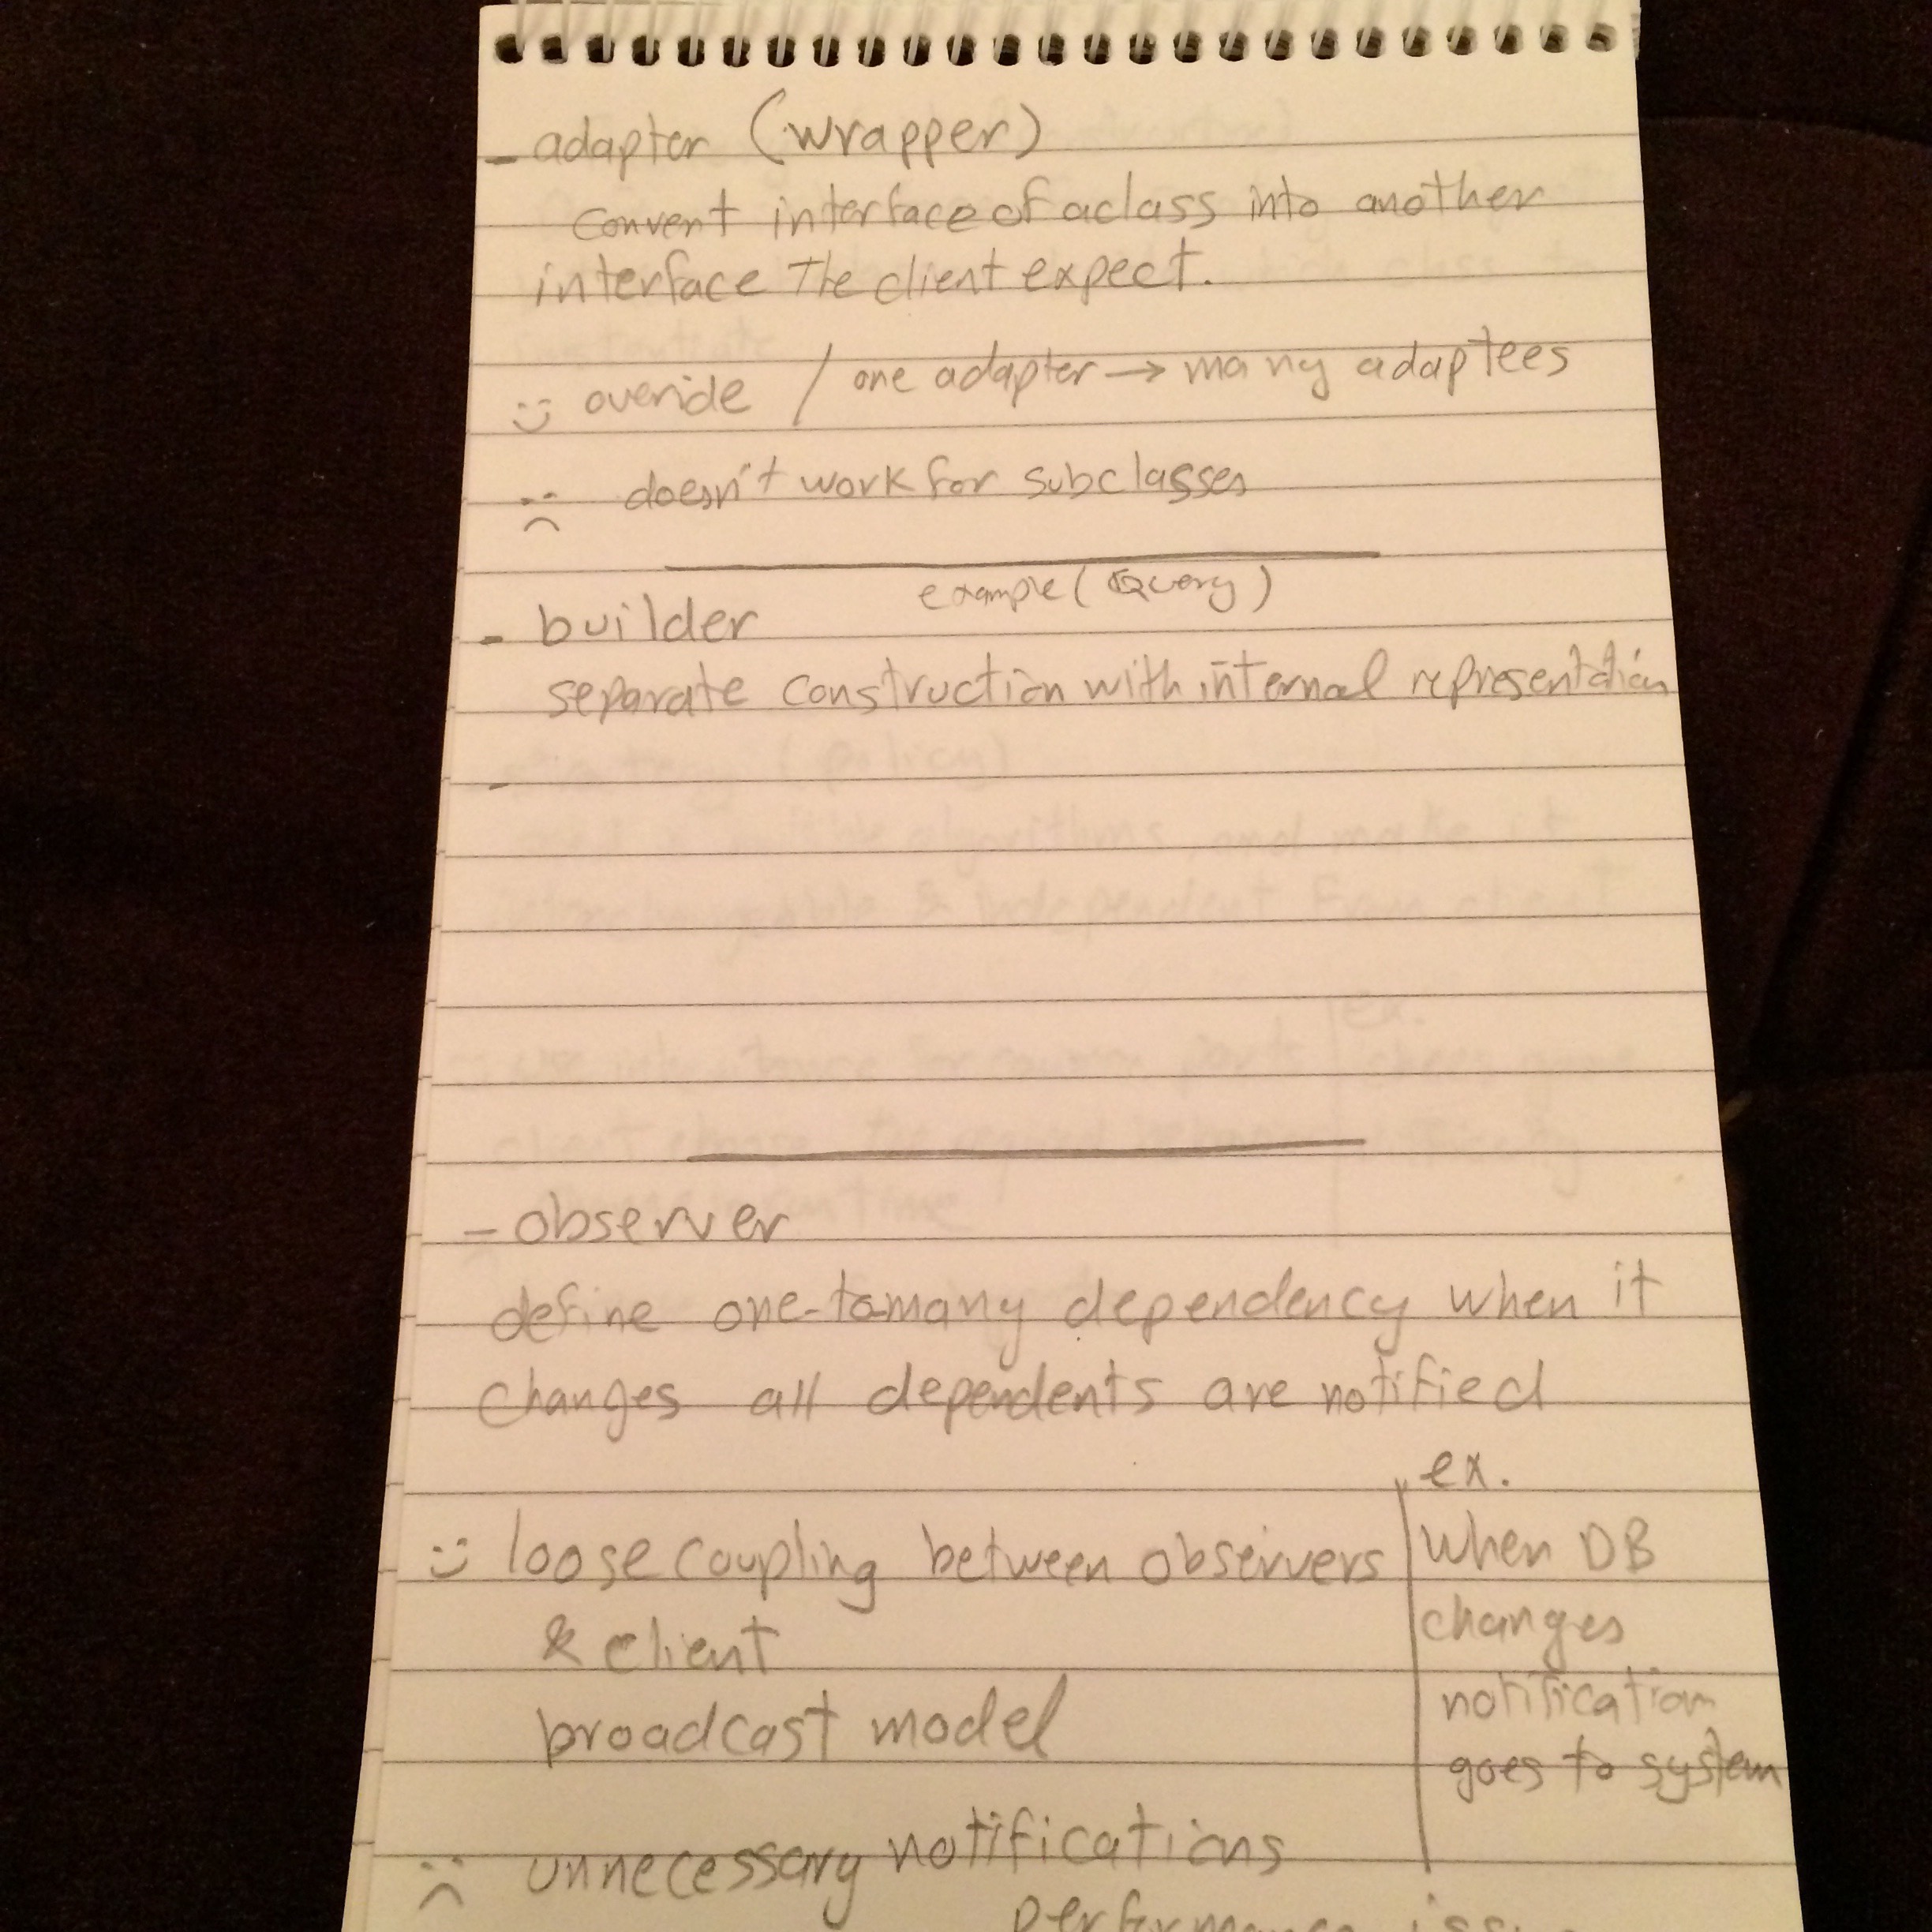 - adapter (wrapper)
convert interface of a class into another
interface the client expect.
override / one adapter → many adaptees
doesn't work for subclasses
example (Query)
- builder
separate construction with internal representation
-
- observer
define one-to-many dependency when it
changes all dependents are notified
ex.
loose coupling between observers
& client
broadcast model
when DB
changes
notification
goes to system
unnecessary notifications
performance